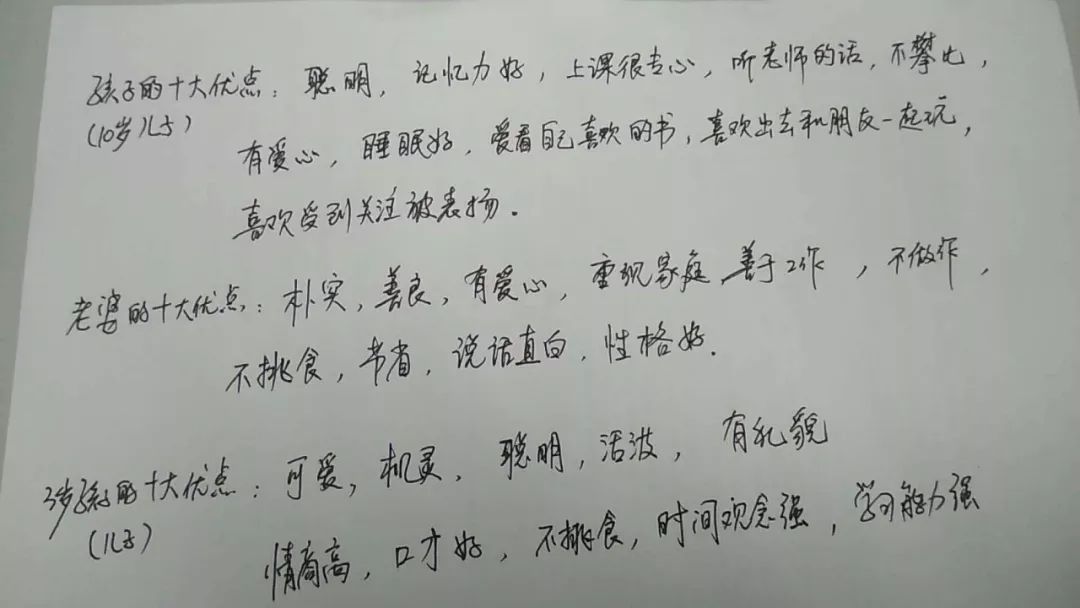 孩子的十大优点：聪明，记忆力好，上课很专心，听老师的话，不攀比，
(10岁)儿子)
有爱心，睡眠好，爱看自己喜欢的书，喜欢出去和朋友一起玩，
喜欢受到关注被表扬．
老婆的十大优点：朴实，善良，有爱心，重视家庭，善于工作，不做作，
不挑食，节省，说话直白，性格好．
3岁孩子的十大优点：可爱，机灵，聪明，活波，有礼貌
(儿子)
情商高，口才好，不挑食，时间观念强，学习能力强